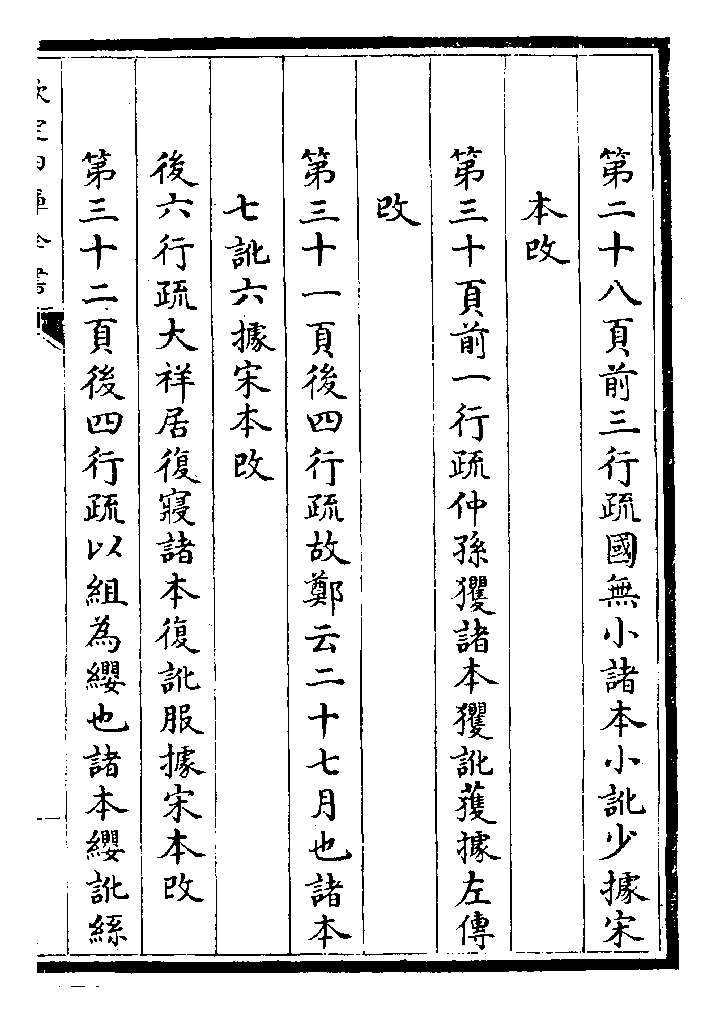 第二十八頁前三行疏國無小諸本小訛少據宋
本改
第三十頁前一行疏仲孫玃諸本玃訛獲據左傳
改
第三十一頁後四行疏故鄭云二十七月也諸本
七訛六據宋本改
後六行疏大祥居復寢諸本復訛服據宋本改
第三十二頁後四行疏以組為纓也諸本纓訛緜